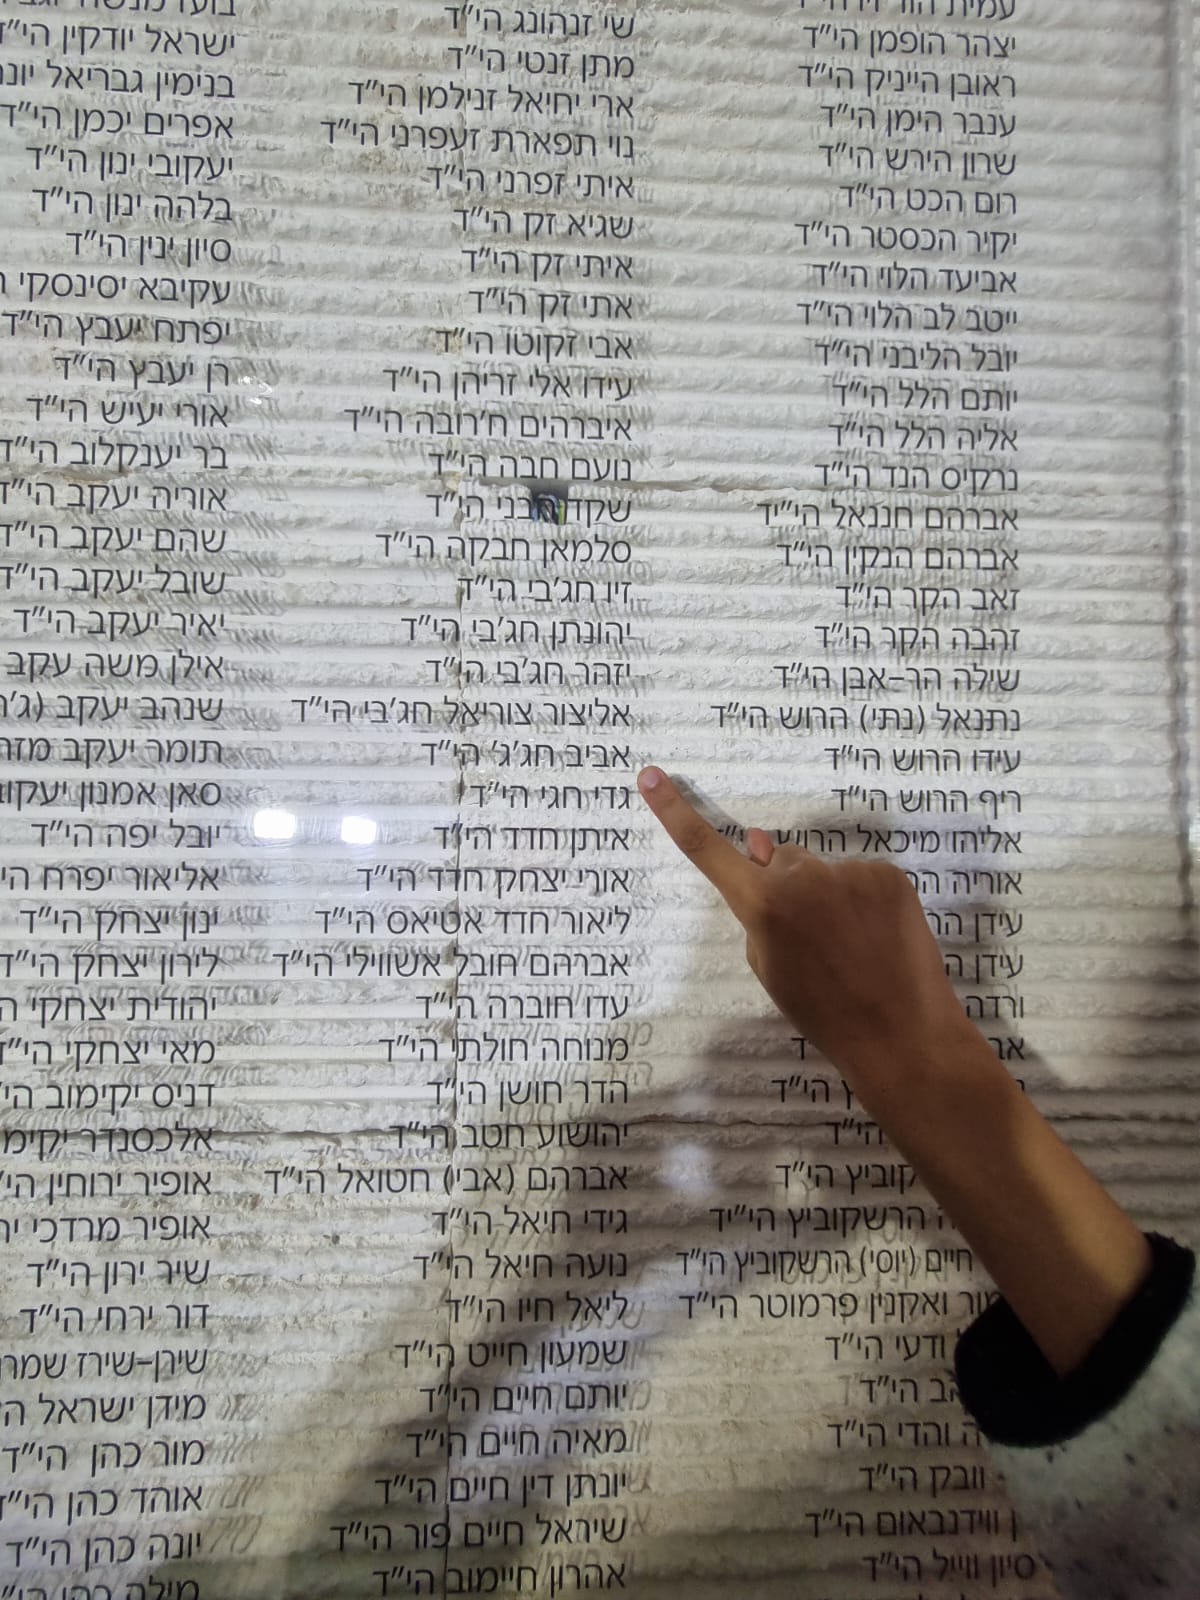 יצהר הופמן הי״ד
ראובן הייניק הי״ד
ענבר הימן הי״ד
שרון הירש הי״ד
רום הכט הי״ד
יקיר הכסטר הי״ד
אביעד הלוי הי״ד
ייטב לב הלוי הי״ד
יובל הליבני הי״ד
יותם הלל הי״ד
אליה הלל הי״ד
נרקיס הנד הי״ד
אברהם חננאל הי״יד
אברהם הנקין הי״ד
זאב הקר הי״ד
זהבה הקר הי״ד
שילה הר–אבן הי״ד
נתנאל (נתי) הרוש הי״ד
עידו הרוש הי״ד
ריף הרוש הי״ד
אליהו מיכאל הרוש
אוריה
עידן
עידן
ורדה
הי״ד
הי״ד
קוביץ הי״ד
הרשקוביץ הי״יד
חיים (יוסי) הרשקוביץ הי״ד
ואקנין פרמוטר הי״ד
ודעי הי״ד
הי״ד
והדי הי״ד
וובק הי״ד
ווידנבאום הי״ד
סיון ווייל הי״ד
שי זנהונג הי״ד
מתן זנטי הי״ד
ארי יחיאל זנילמן הי״ד
נוי תפארת זעפרני הי״ד
איתי זפרני הי״ד
שגיא זק הי״ד
איתי זק הי״ד
אתי זק הי״ד
אבי זקוטו הי״ד
עידו אלי זריהן הי״ד
איברהים ח׳רובה הי״ד
נועם חבה הי״ד
שקד חבני הי״ד
סלמאן חבקה הי״ד
זיו חג׳בי הי״ד
יהונתן חג׳בי הי״ד
יזהר חג׳בי הי״ד
אליצור צוריאל חג׳בי הי״ד
אביב חג׳ג׳ הי״ד
גדי חגי הי״ד
איתן חדד הי״ד
אורי יצחק חדד הי״ד
ליאור חדד אטיאס הי״ד
אברהם חובל אשווילי הי״ד
עדו חוברה הי״ד
מנוחה חולתי הי״ד
הדר חושן הי״ד
יהושוע חטב הי״ד
אברהם (אבי) חטואל הי״ד
גידי חיאל הי״ד
נועה חיאל הי״ד
ליאל חיו הי״ד
שמעון חייט הי״ד
יותם חיים הי״ד
מאיה חיים הי״ד
יונתן דין חיים הי״ד
שיראל חיים פור הי״ד
אהרון חיימוב הי״ד
ישראל יודקין הי״ד
בנימין גבריאל
אפרים יכמן הי״ד
יעקובי ינון הי״ד
בלהה ינון הי״ד
סיון ינין הי״ד
עקיבא יסינסקי
יפתח יעבץ הי״ד
רן יעבץ הי״ד
אורי יעיש הי״ד
בר יענקלוב הי״ד
אוריה יעקב הי״ד
שהם יעקב הי״ד
שובל יעקב הי״ד
יאיר יעקב הי״ד
אילן משה עקב
שנהב יעקב
תומר יעקב
סאן אמנון
יובל יפה הי״ד
אליאור יפרח
ינון יצחק הי״ד
לירון יצחק הי״ד
יהודית יצחקי
מאי יצחקי הי״ד
דניס יקימוב הי״ד
אלכסנדר
אופיר ירוחין
אופיר מרדכי
שיר ירון הי״ד
דור ירחי הי״ד
שירן–שירז
מידן ישראל
מור כהן הי״ד
אוהד כהן הי״ד
יונה כהן הי״ד
מילה כהן הי״ד